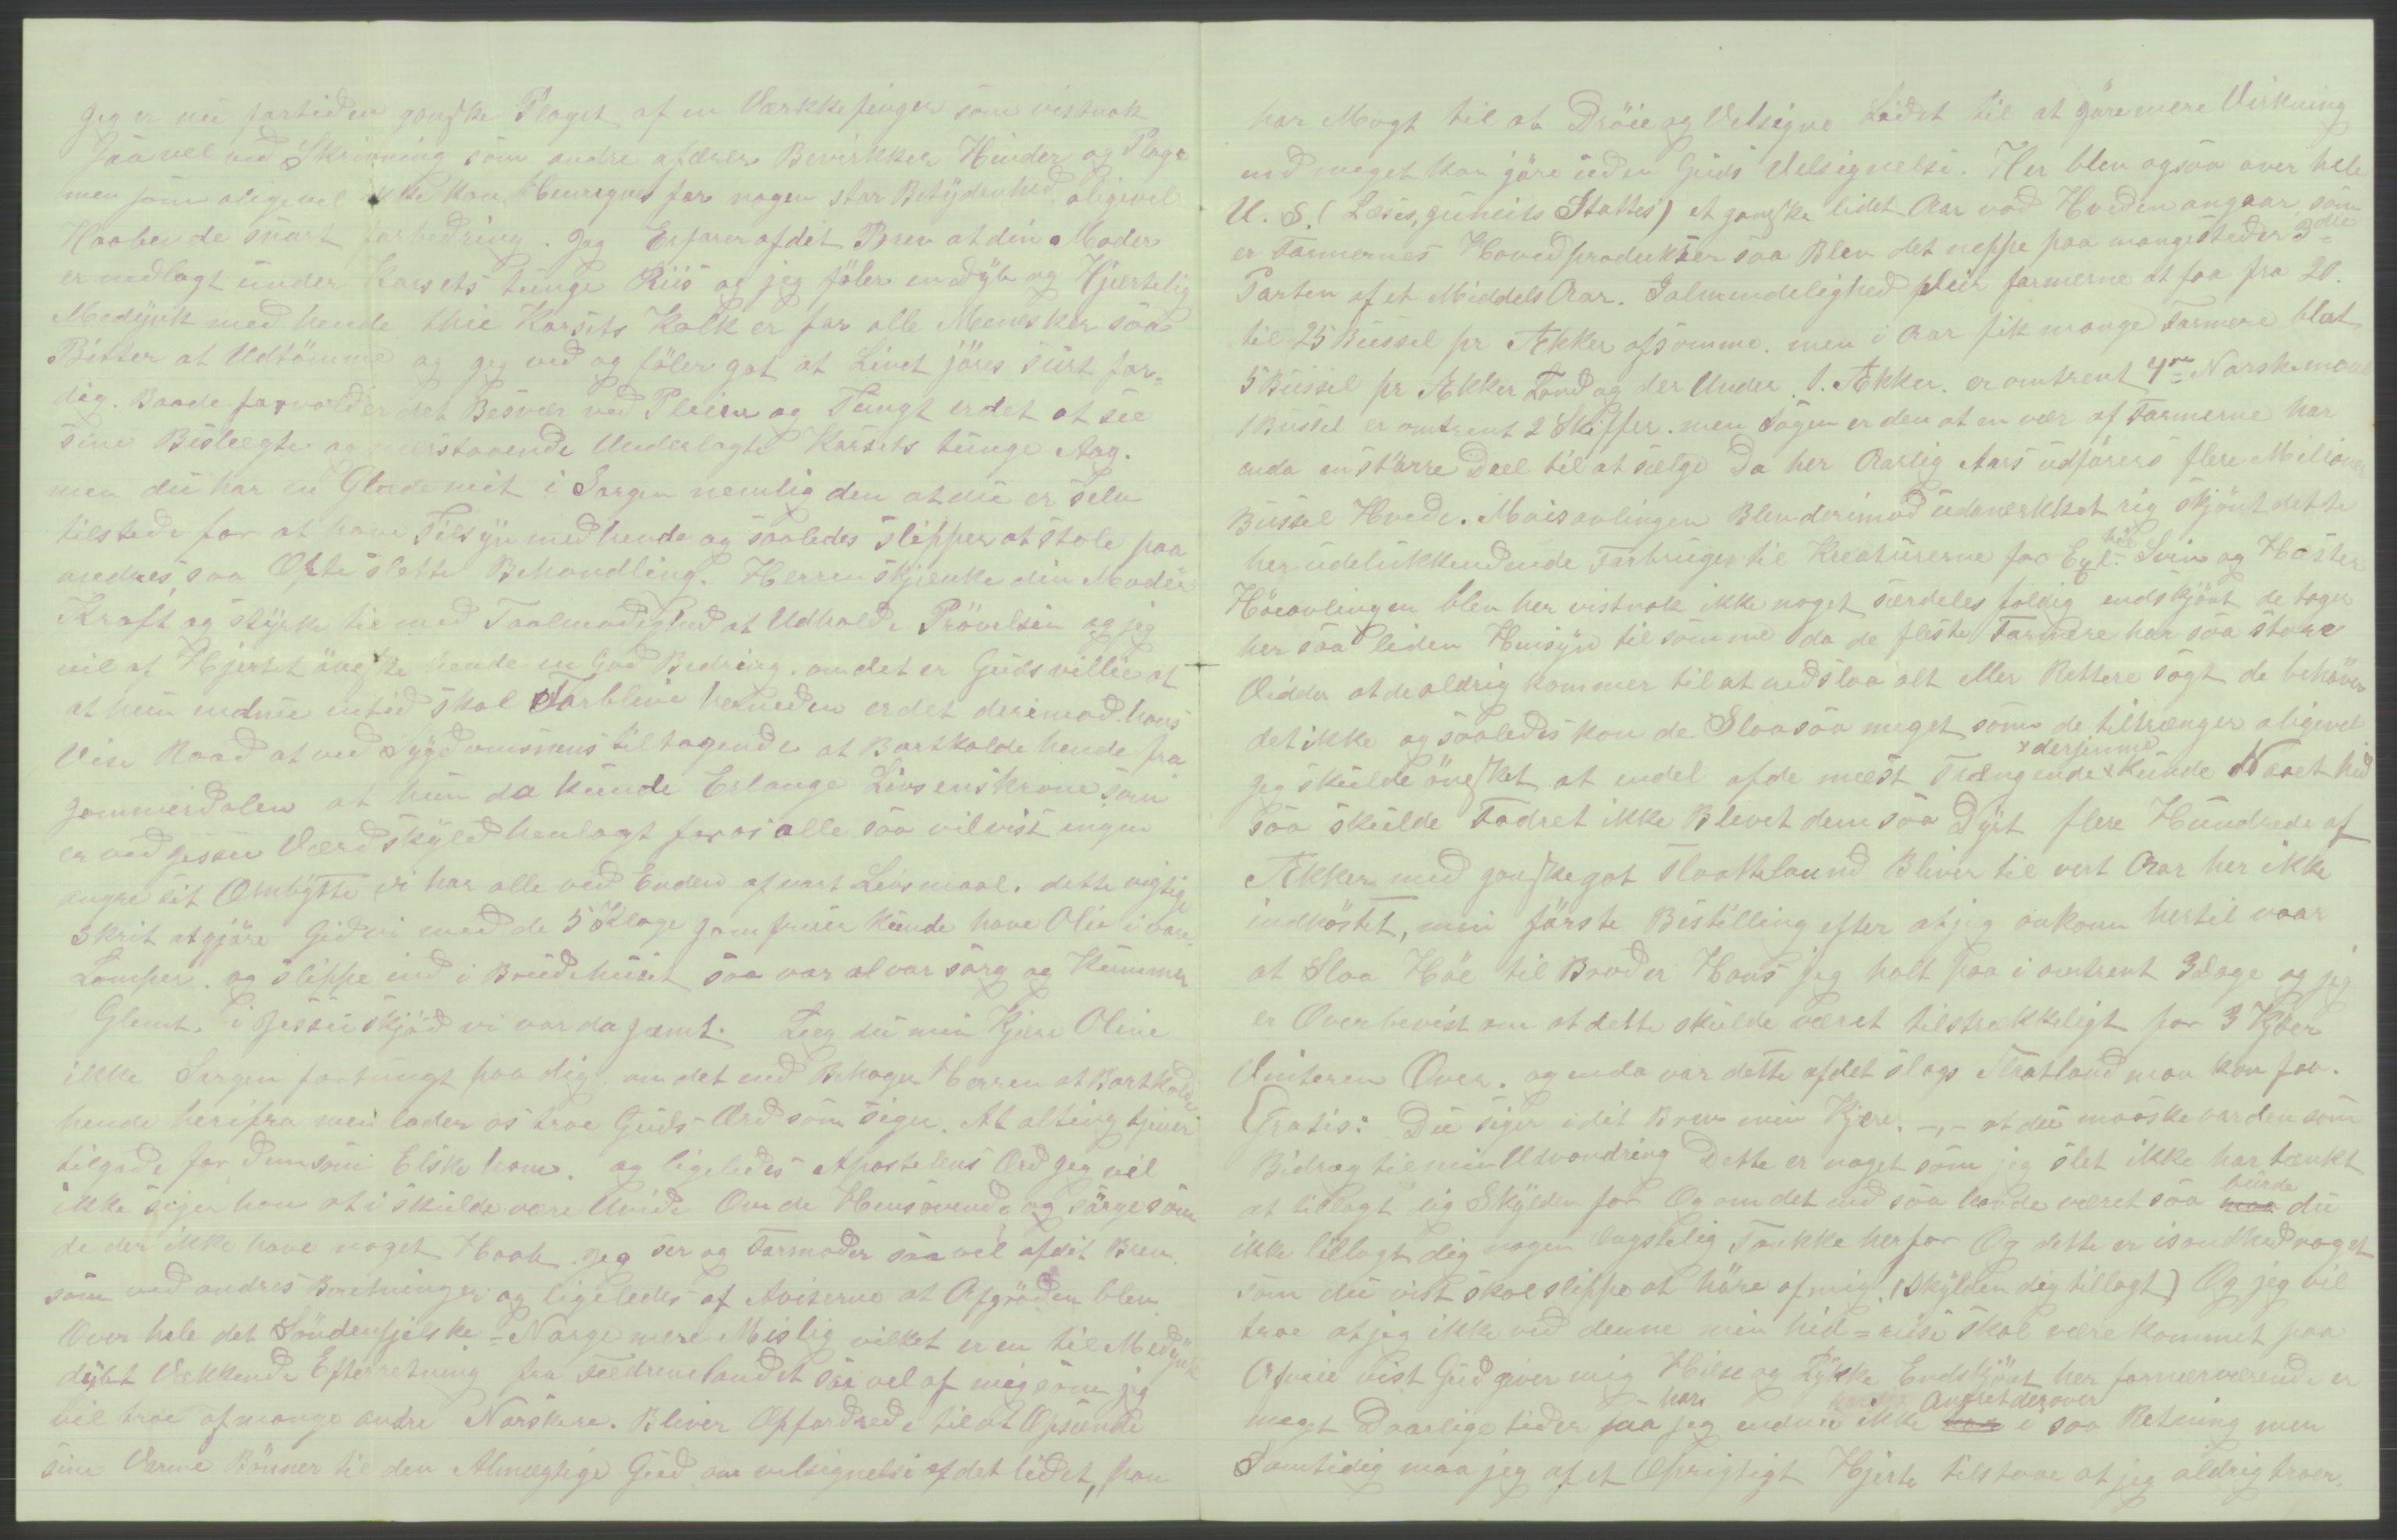 jeg er nu fortiden ganske Plaget af en Værkkefinger som vistnok
saavel ved Skrivning som andre afærer Bevirkker Hinder og Plage
men som aligevel ikke kan Henregnes for nogen stor Betydenhed aligevel
Haabende snart forbedring. Jeg Erfarer af dit Brev at din Moder
er nedlagt under Korsets tunge Riis og jeg föler en dyb og Hjertelig
Medynk med hende thie Korsets Kalk er for alle Menesker saa
Bitter at Udtömme og jeg ved og föler got at Livet jöres surt for-
dig. Baade forvolder det Besvær ved Pleien og Tungt er det at see
sine Beslegte og nærstaaende Underlagte Korsets tunge Aag.
men du har en Glæde mit i Sorgen nemlig den at du er selv
tilstede for at have Tilsyn med hende og saaledes slipper at stole paa
andres, saa Ofte slette Behandling. Herren skjenke din Moder
Kraft og styrke til med Taalmodighed at Udholde Prövelsen og jeg
vil af Hjertet önske hende en God Bedring. om det er Guds villie at
at hun endnu entid skal Forblive herneden er det derimod hans
Vise Raad at ved Sygdommens tiltagende at Bortkalde hende fra
jammerdalen at hun da kunde Erlange Livsenskrone som
er ved jessu Værdskyld henlagt for os alle saa vil vist ingen
angre sit Ombytte vi har alle ved Enden af vort Livsmaal. dette vigtige
skrit at gjöre Gid vi med de 5 Kloge jomfruer kunde have Olie i vore
Lamper. og slippe ind i Brudehuset saa var al vor sorg og Kummer
Glemt. i jessu skjöd vi var da gjemt. Læg du min Kjære Oline
ikke Sorgen for tungt paa dig. om det ned Behager Herren at Bortkalde
hende herifra men lader os troe Guds Ord som siger. At alting tjener
tilgode for dem som Elske ham. og ligeledes Apostelens Ord jeg vil
ikke siger han at i skulde være Uvide Om de Hensovende og sörge som
de der ikke have noget Haab. jeg ser og Formoder saa vel af dit Brev
som ved andres Beretninger og ligeledes af Aviserne at Afgröden blev
Over hele det Söndenfjelske-Norge mere Mislig vilket er en til Medynk
dybt Vækkende Efterretning fra Fædrenelandet saa vel af mig som jeg
vil troe af mange andre Norskere. Bliver Opfordrede til at Opsænde
sine Varme Bönner til den Almegtige Gud om velsignelse af det lidet, han
har Magt til at Dröie og Velsigne Lidet til at göre mere Virkning
end meget kan göre uden Guds Velsignelse. Her blev ogsaa over hele
U. S. (Læses, juneits Stattes) et ganske lidet Aar vad Hveden angaar som
er Farmernes Hovedprodukter saa Blev det neppe paa mangesteder 3die
Parten af et Middels Aar. I almindelighed pleier farmerne at faa fra 20.
til 25 Bussel pr Ækker afsomme. men i Aar fik mange Farmere blot
5 Bussel pr Ækker Land og der Under. 1. Ækker. er omtrent 4re Norske maal
1 Bussel er omtrent 2 Skjepper. men Sagen er den at en vær af Farmerne har
enda en större Deel til at sælge Da her Aarlig Aars udföres flere Milioner
Bussel Hvede. Maisavlingen Blev derimod udmerkket rig skjönt dette
her udelukkendende Forbruges til Kreaturerne for Exl. Svin og Hæster
Höeavlingen blev her vistnok ikke noget særdeles foldig endskjönt de tager
her saa liden Hensyn til somme da de fleste Farmere har saa store
Vidder at de aldrig kommer til at nedslaa alt eller Rettere sagt de behöver
det ikke og saaledes kan de Slaa saa meget som de tiltrænger aligevel
x derhjemme
jeg skulde önsket at endel af de mæst Trængende x kunde Naaet hid
saa skulde Fodret ikke Blevet dem saa Dyrt flere Hundrede af
Ækker med ganske got slaatteland Bliver til vert Aar her ikke
indhöstet, min förste Bestilling efter at jeg ankom hertil vaar
at Slaa Höe til Broder Hans jeg holt paa i omtrent 3 dage og jeg
er Overbevist om at dette skulde været tilstrækkeligt for 3 Kjöer
Vinteren Over. og enda var dette af det slags Slatland man kan faa.
Gratis: Du siger i dit Brev min Kjære. -,- at du maaske var den som
Bidrog til min Udvandring Dette er noget som jeg slet ikke har tænkt
at tillagt dig Skylden for Og om det end saa havde været saa burde du
ikke tillagt dig nogen ængstelig Tankke herfor Og dette er isandhed noget
som du vist skal slippe at höre af mig. (Skylden dig tillagt) Og jeg vil
troe at jeg ikke ved denne min hid-reise skal være kommet paa
Afveie vist Gud giver mig Hilse og Lykke Endskjönt her fornærværende er
har Angret derover
meget Daarlige tider saa jeg endnu ikke i saa Retning men
Samtidig maa jeg af et Oprigtigt Hjerte tilstaae at jeg aldrig troer.